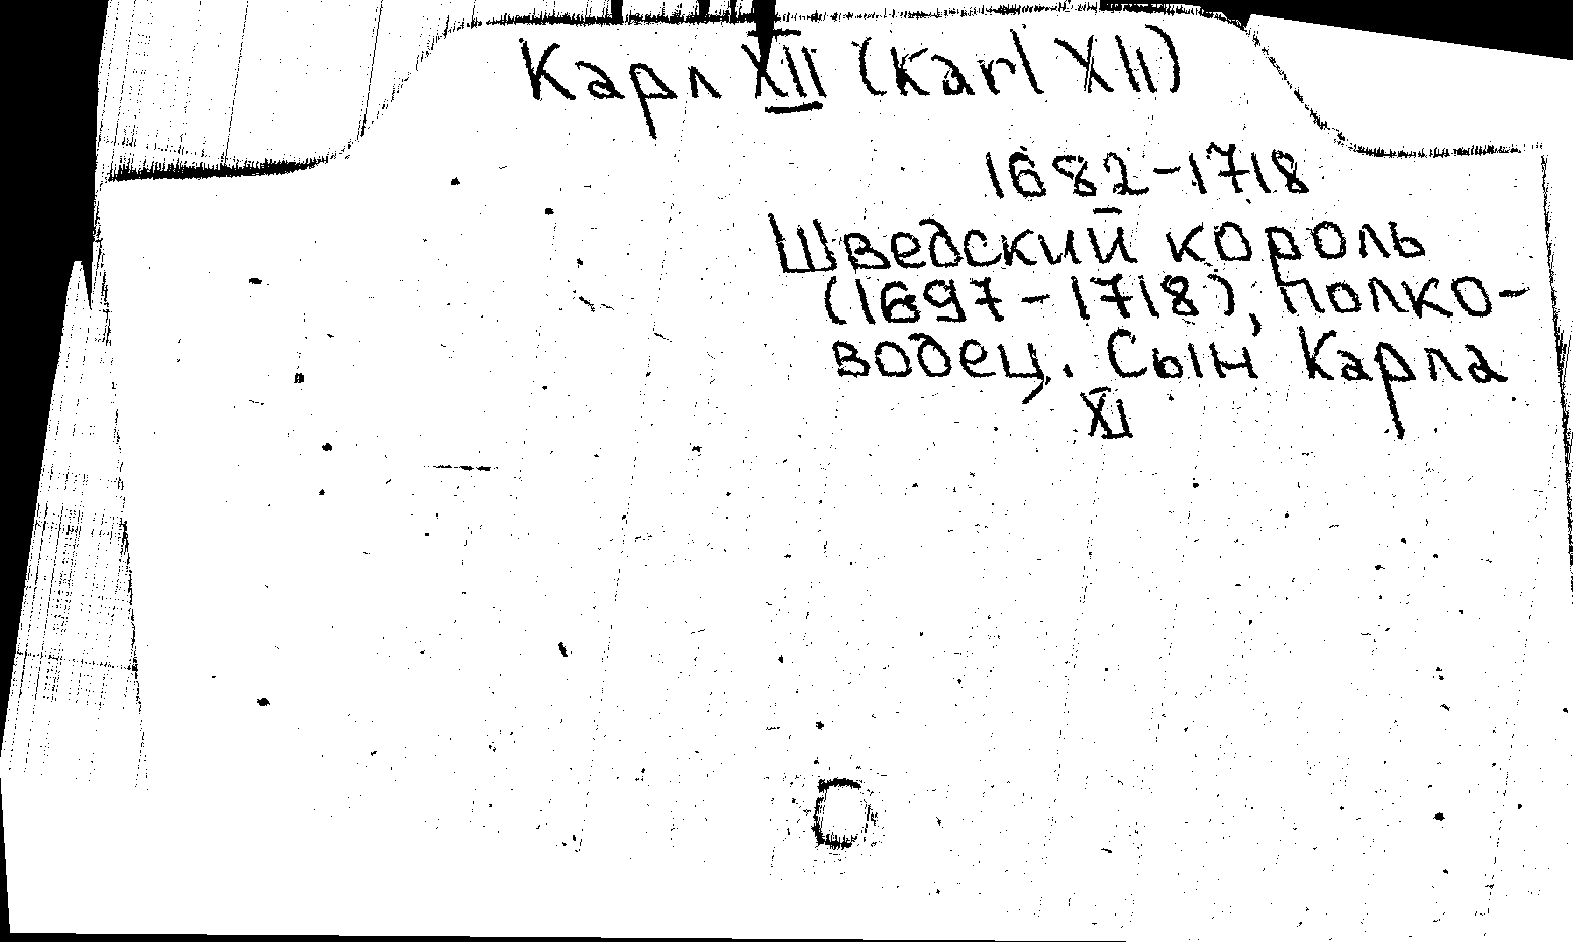 Карл XII (Karl XII)
1682-1718
Шведский король
(1697-1718), полко-
водец. Сын Карла
XI